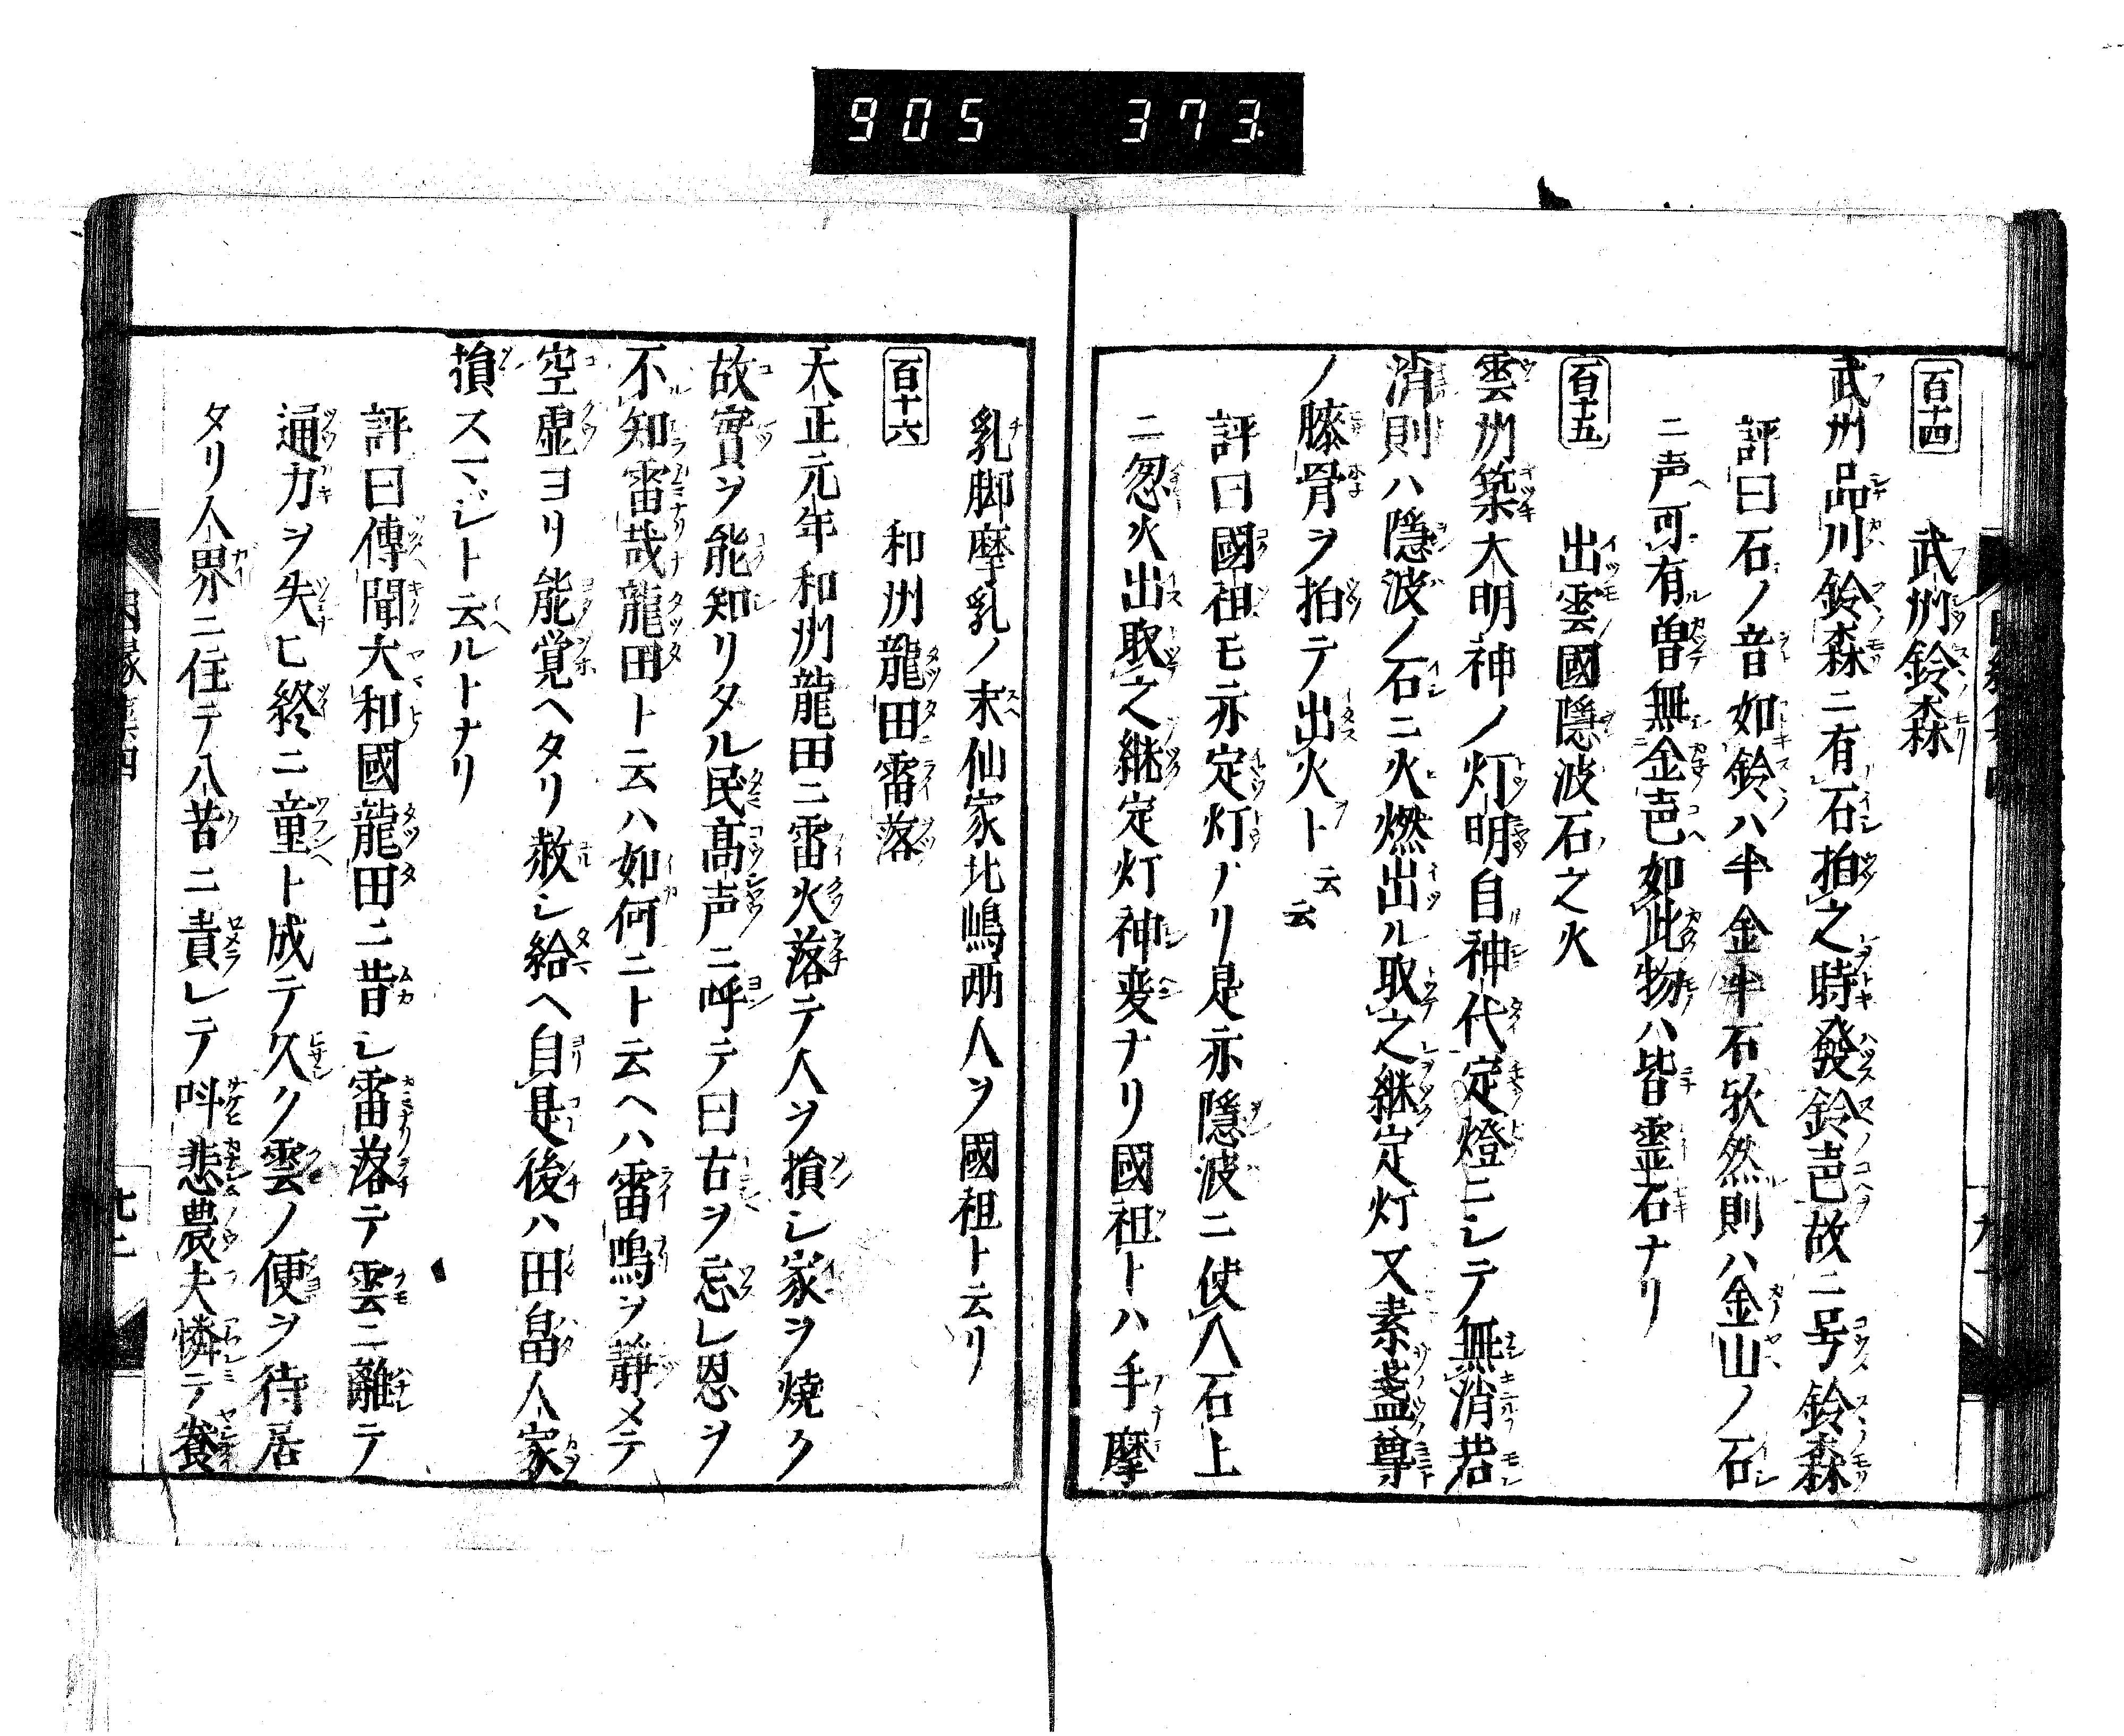 905 373.
百十四 武州鈴森
武州品川鈴森ニ有石拍之時發鈴声故ニ号鈴森
評曰石ノ音如鈴ハ半金半石欤然則ハ金山ノ石
ニ声可有曽無金声如此物ハ皆霊石ナリ
百十五 出雲國隠波石之火
雲州築大明神ノ灯明自神代定燈ニシテ無消若
消則ハ隠波ノ石ニ火燃出ル取之継定灯又素盞尊
ノ膝骨ヲ拍テ出火ト云云
評曰國祖モ亦定灯ノリ是亦隠波ニ使八石上
ニ忽火出取之継定灯神变ナリ國祖トハ手摩
乳脚摩乳ノ末仙家北嶋兩人ヲ國祖ト云リ
百十六 和州龍田雷落
天正元年和州龍田ニ雷火落テ人ヲ損シ家ヲ焼ク
故實ヲ能知リタル民髙声ニ呼テ曰古ヲ忘レ恩ヲ
不知雷哉龍田ト云ハ如何ニト云ヘハ雷鳴ヲ静メテ
空虚ヨリ能覚ヘタリ赦シ給ヘ自是後ハ田畠人家
損スマシト云ルトナリ
評曰傳聞大和國龍田ニ昔シ雷落テ雲ニ離テ
通力ヲ失ヒ終ニ童ト成テ久ク雲ノ便ヲ待居
タリ人界ニ住テ八苦ニ責レテ呌悲農夫憐テ養